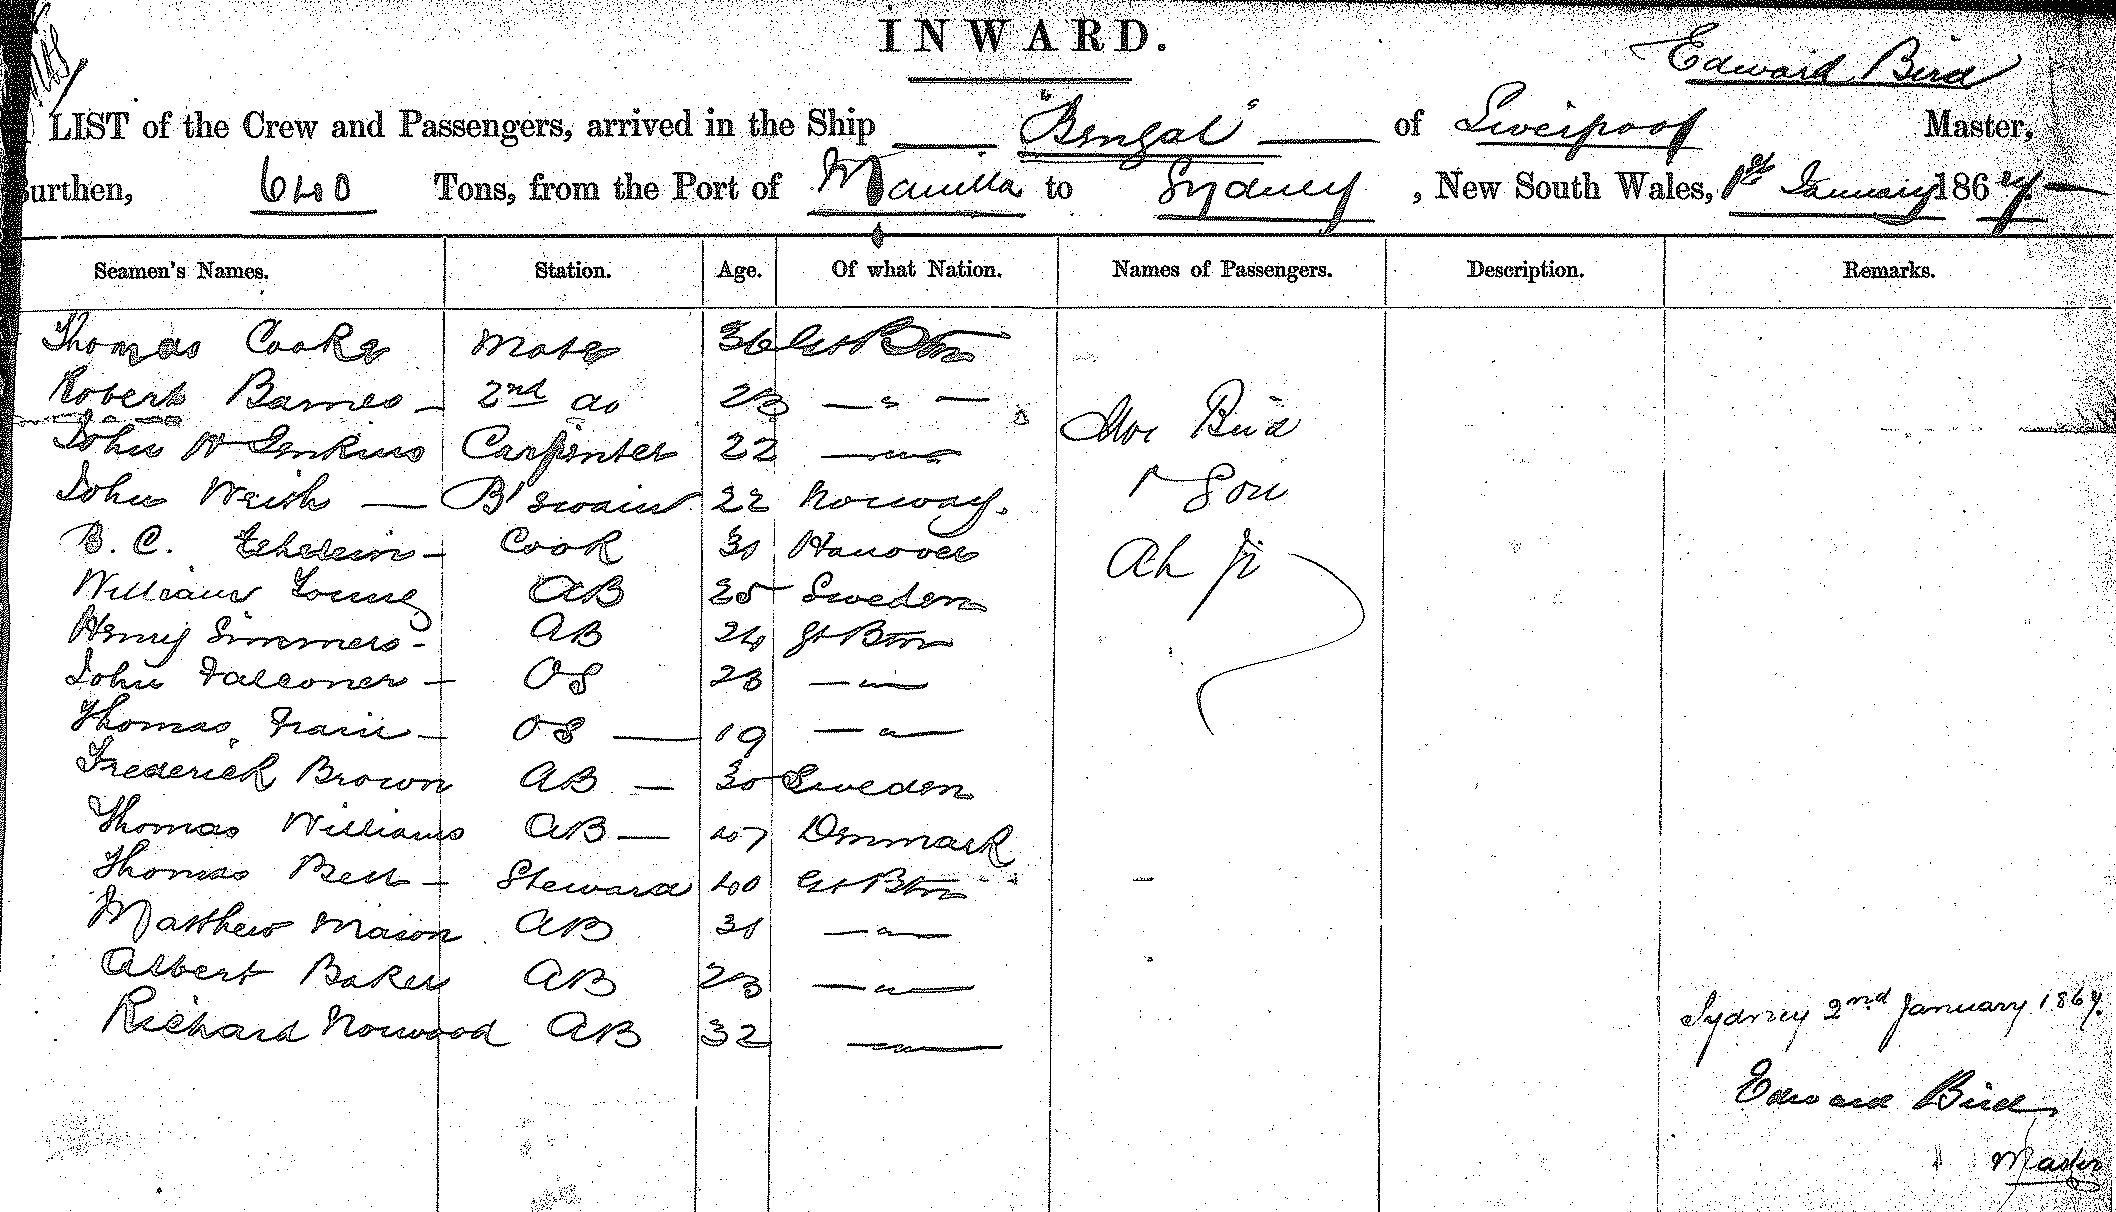 INWARD.
Edward Bird
LIST of the Crew and Passengers, arrived in the Ship "Bengal" of Liverpool Master,
Burthen, 640 Tons, from the Port of Manilla to Sydney, New South Wales, 1st January 1867
Seamen's Names. Station. Age. Of what Nation. Names of Passengers. Description. Remarks.
Thomas Cooke Mate 36 Gt Btn
Robert Barnes 2nd do 23 — " —
Mrs Bird
John W Jenkins Carpenter 22 — " —
John Weish B'swain 22 Norway.
& Son
B. C. Cook 30 Hanover
Ah Ji
William Young AB 25 Sweden
Henry Simmers AB 24 Gt Btn
John Falconer OS 23 — " —
Thomas OS 19 — " —
Frederick Brown AB 30 Sweden
Thomas Williams AB 47 Denmark
Thomas Bell Steward 40 Gt Btn
Matthew Mason AB 31 — " —
Albert Baker AB 23 — " —
Richard Norwood AB 32 — " —
Sydney 2nd January 1867.
Edward Bird
Master